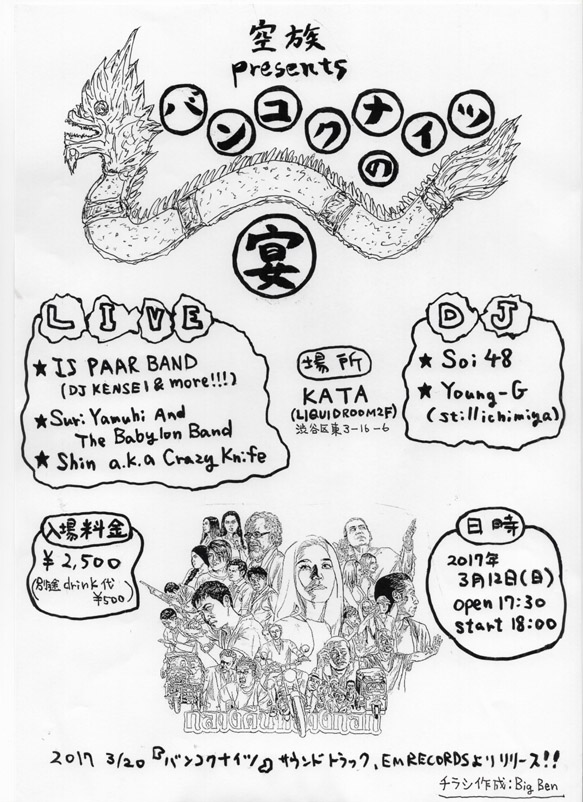 空族
presents
バンコクナイツの
宴
LIVE
★ IS PAAR BAND
(DJ KENSEI & more!!!)
★ Suri Yamuhi And
The Babylon Band
★ Shin a.k.a Crazy Knife
場所
KATA
(LIQUIDROOM2F)
渋谷区東3-16-6
DJ
★ Soi 48
★ Young-G
(stillichimiya)
入場料金
¥2,500
(別途drink代
¥500)
日時
2017年
3月12日(日)
open 17:30
start 18:00
2017 3/20『バンコクナイツ』サウンドトラック、EM RECORDSよりリリース!!
チラシ作成:Big Ben